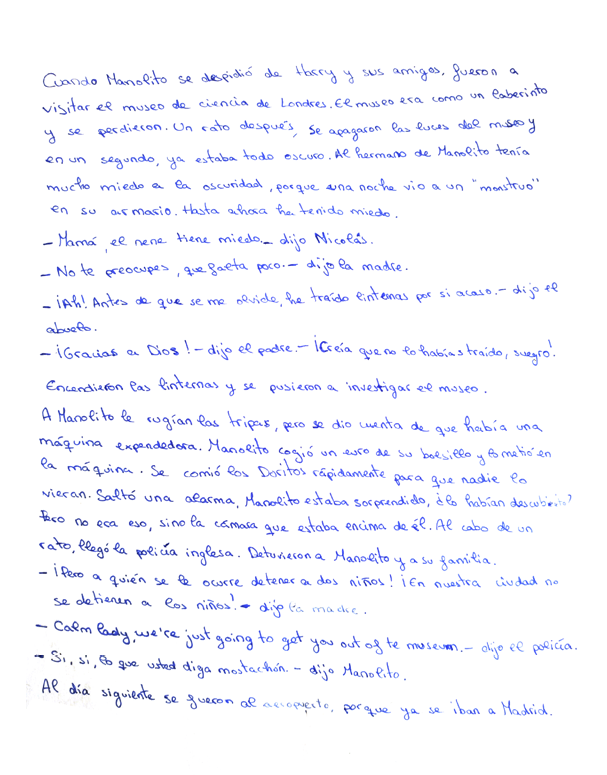 Cuando Manolito se despidió de Harry y sus amigos, fueron a
visitar el museo de ciencia de Londres. El museo era como un laberinto
y se perdieron. Un rato después, se apagaron las luces del museo y
en un segundo, ya estaba todo oscuro. Al hermano de Manolito tenía
mucho miedo a la oscuridad, porque una noche vio a un "monstruo"
en su armario. Hasta ahora ha tenido miedo.
- Mamá, el nene tiene miedo.- dijo Nicolás.
- No te preocupes, que falta poco.- dijo la madre.
- ¡Ah! Antes de que se me olvide, he traído linternas por si acaso.- dijo el
abuelo.
- ¡Gracias a Dios!- dijo el padre.- ¡Creía que no lo habías traído, suegro!
Encendieron las linternas y se pusieron a investigar el museo.
A Manolito le rugían las tripas, pero se dio cuenta de que había una
máquina expendedora. Manolito cogió un euro de su bolsillo y lo metió en
la máquina. Se comió los Doritos rápidamente para que nadie lo
vieran. Saltó una alarma, Manolito estaba sorprendido, ¿lo habían descubierto?
Pero no era eso, sino la cámara que estaba encima de él. Al cabo de un
rato, llegó la policía inglesa. Detuvieron a Manolito y a su familia.
- ¡Pero a quién se le ocurre detener a dos niños! ¡En nuestra ciudad no
se detienen a los niños!- dijo la madre.
- Calm lady, we're just going to get you out of te museum.- dijo el policía.
- Si, si, lo que usted diga mostachón.- dijo Manolito.
Al día siguiente se fueron al aeropuerto, porque ya se iban a Madrid.